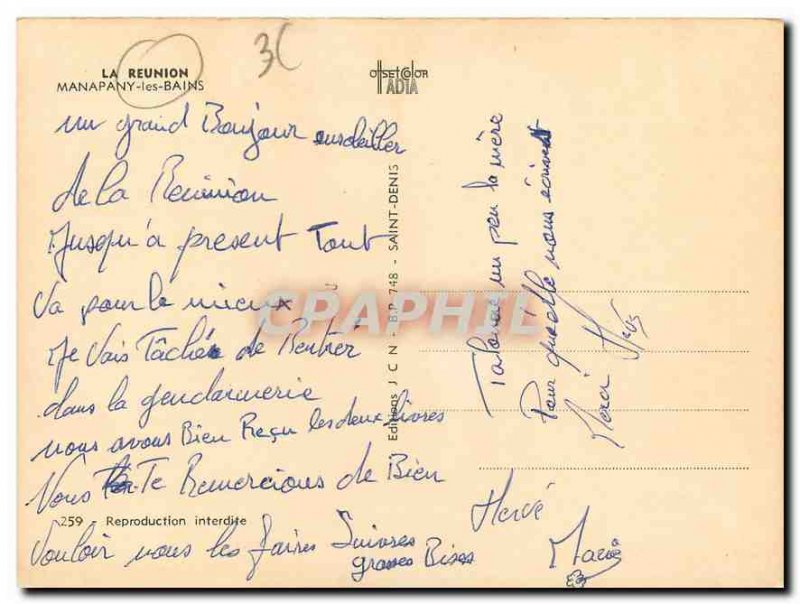 3C
LA REUNION
MANAPANY-les-BAINS
offsetcolor
ADIA
un grand Bonjour ensoleiller
de la Reunion
Jusqu'à present Tout
va pour le mieux
Je Vais Tâcher de Rentrer
dans la gendarmerie
nous avons Bien Reçu les deux livres
Nous Te Remercions de Bien
259 Reproduction interdite
Vouloir nous les faires Suivres
grosses Bises
Editions J C N - B.P. 748 - SAINT-DENIS
CPAPHIL
Talonne un peu la mère
Pour qu'elle nous écrivent
Merci
Hervé